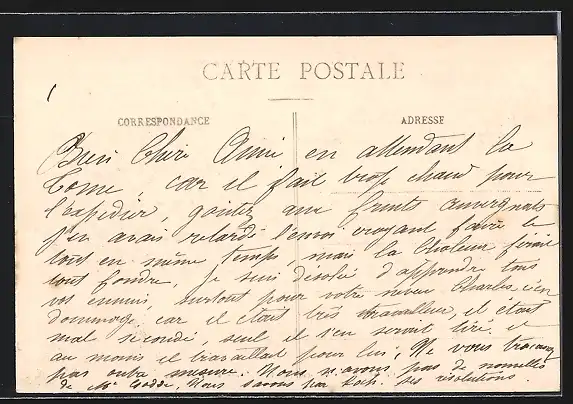 CARTE POSTALE
CORRESPONDANCE
ADRESSE
Bien Chère Amie en attendant la
Tome, car il fait trop chaud pour
l'expédier, goutez aux fruits auvergnats
j'en avais retardé l'envoi croyant faire le
tout en même temps mais la chaleur ferait
tout fondre, je suis désolée d'apprendre tous
vos ennuis, surtout pour votre neveu Charles c'est
dommage car il était très travailleur, il était
mal secondé, seul il s'en serait tiré et
au moins il travaillait pour lui, Ne vous tracassez
pas outre mesure. Nous n'avons pas de nouvelles
de Mr Nous savons pas ses résolutions.